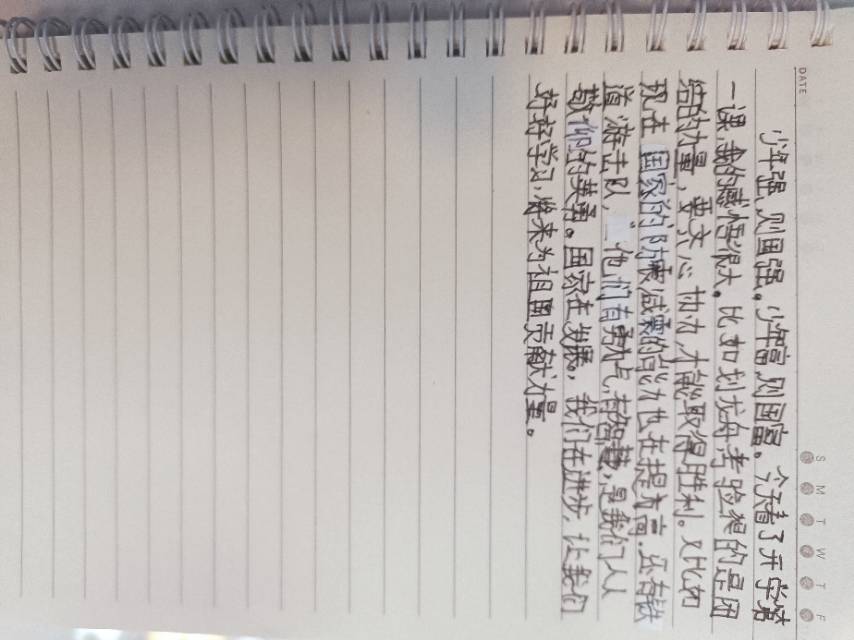 DATE
S M T W T F
少年强,则国强。少年富,则国富。今天看了开学第
一课,我的感悟很大。比如划龙舟,考验得的是团
结的力量,要齐心协力,才能取得胜利。又比如
现在国家的防震减震的能力也在提高,还有铁
道游击队,“他们有勇气,有智慧,是我们人人
敬仰的英勇。国家在发展,我们在进步,让我们
好好学习,将来为祖国贡献力量。